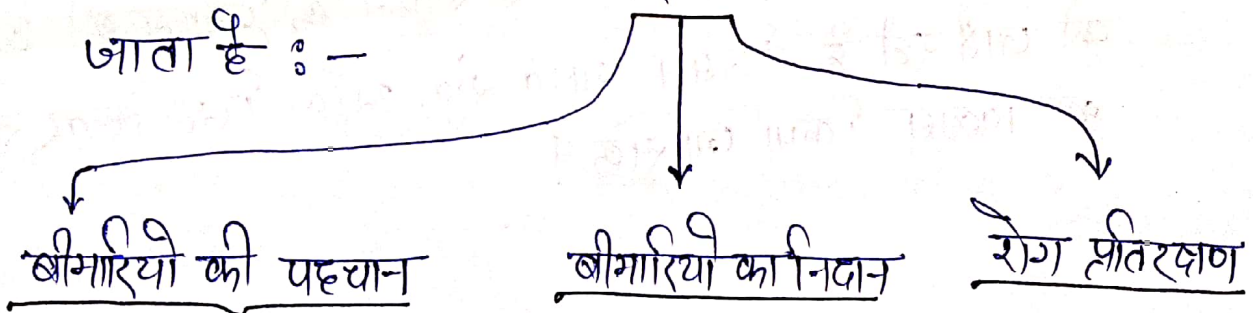 जाता है :-
बीमारियो की पहचान बीमारियो का निदान रोग प्रतिरक्षण